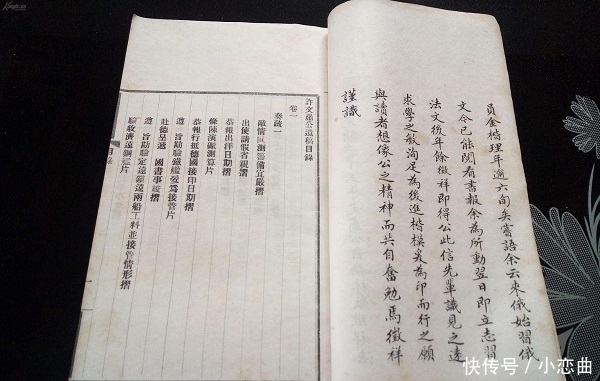 員金楷理年過六旬矣嘗語余云來俄始習俄
文今已能閱看書報余為所動翌日即立志習
法文後年餘徵祥即得公此信先輩識見之遠
求學之敏洵足為後進楷模爰為印而行之願
與讀者想像公之精神而共自奮勉焉徵祥
謹識
許文肅公遺稿目錄
卷一
奏疏一
敵情叵測備宜嚴摺
出使請假省親摺
恭報出洋日期摺
條陳演測片
恭報行抵德國接印日期摺
遵 旨勘驗鐵艦妥為接管片
赴德呈遞 國書事竣摺
遵 旨勘驗定遠鎮遠兩船工料並接管情形摺
驗收濟遠鋼艦片
目錄
快传号 / 小恋曲